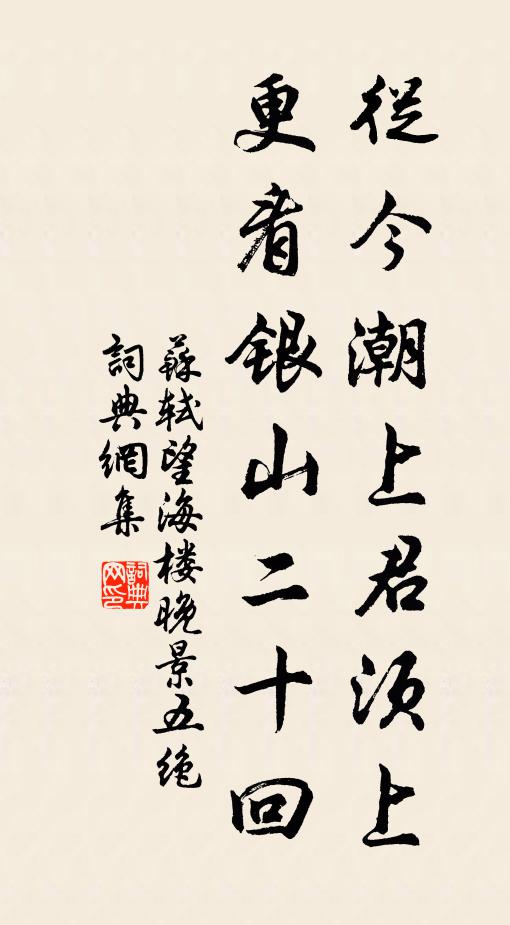 從今潮上君須上
更看銀山二十回
蘇軾望海楼晚景五絶
詞典網集
詞典网印